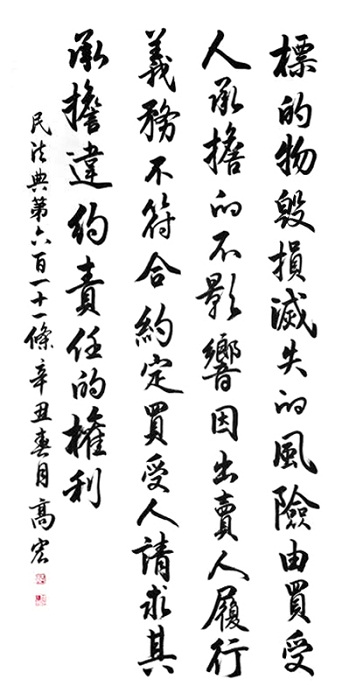 標的物毀損滅失的風險由買受
人承擔的不影響因出賣人履行
義務不符合約定買受人請求其
承擔違約責任的權利
民法典第六百一十一條辛丑春月高宏